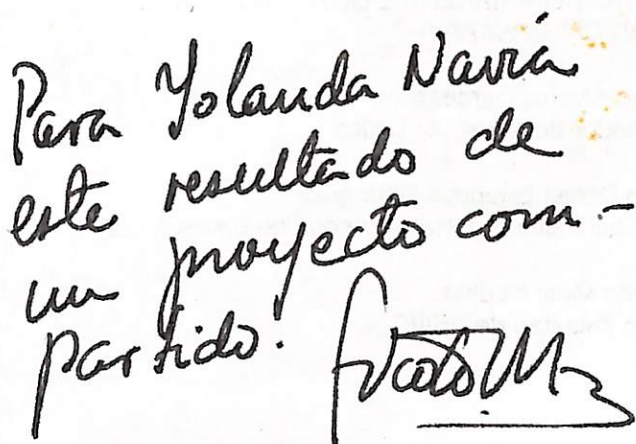 Para Yolanda Navia
este resultado de
un proyecto com-
partido!